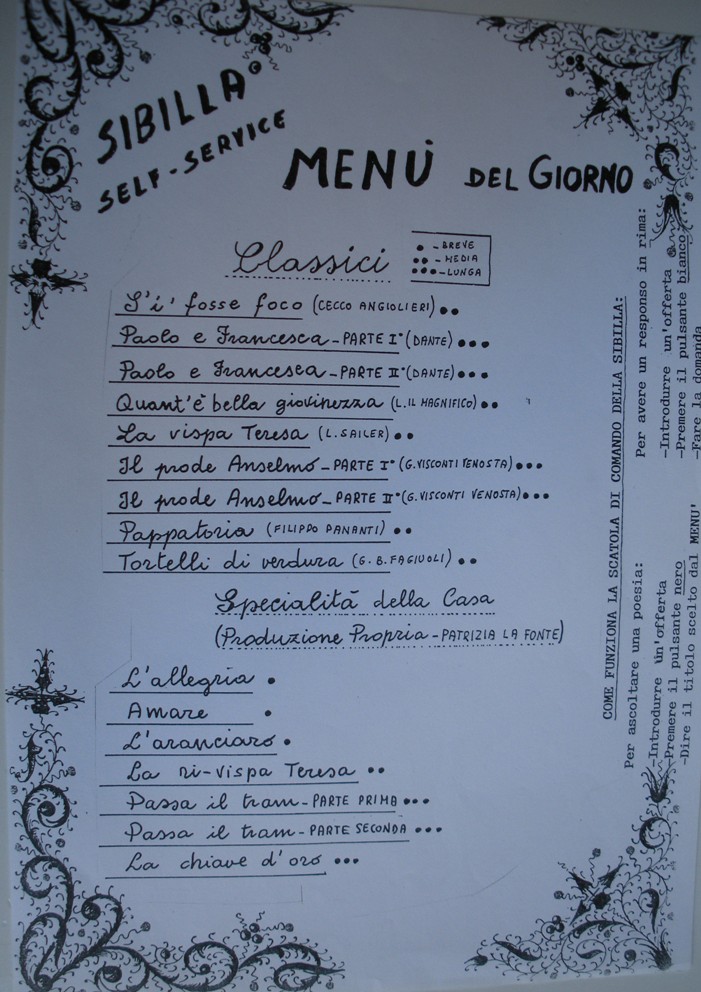 SIBILLA
SELF-SERVICE
MENÙ DEL GIORNO
Classici
• - BREVE
•• - MEDIA
••• - LUNGA
S'i' fosse foco (CECCO ANGIOLIERI) ••
Paolo e Francesca - PARTE I° (DANTE) •••
Paolo e Francesca - PARTE II° (DANTE) •••
Quant'è bella giovinezza (L. IL MAGNIFICO) ••
La vispa Teresa (L. SAILER) ••
Il prode Anselmo - PARTE I° (G. VISCONTI VENOSTA) •••
Il prode Anselmo - PARTE II° (G. VISCONTI VENOSTA) •••
Pappatoria (FILIPPO PANANTI) ••
Tortelli di verdura (G. B. FAGIUOLI) ••
Specialità della Casa
(Produzione Propria - PATRIZIA LA FONTE)
L'allegria •
Amare •
L'aranciaro •
La ri-vispa Teresa ••
Passa il tram - PARTE PRIMA •••
Passa il tram - PARTE SECONDA •••
La chiave d'oro •••
COME FUNZIONA LA SCATOLA DI COMANDO DELLA SIBILLA:
Per ascoltare una poesia:
-Introdurre un'offerta
-Premere il pulsante nero
-Dire il titolo scelto dal MENU'
Per avere un responso in rima:
-Introdurre un'offerta
-Premere il pulsante bianco
-Fare la domanda